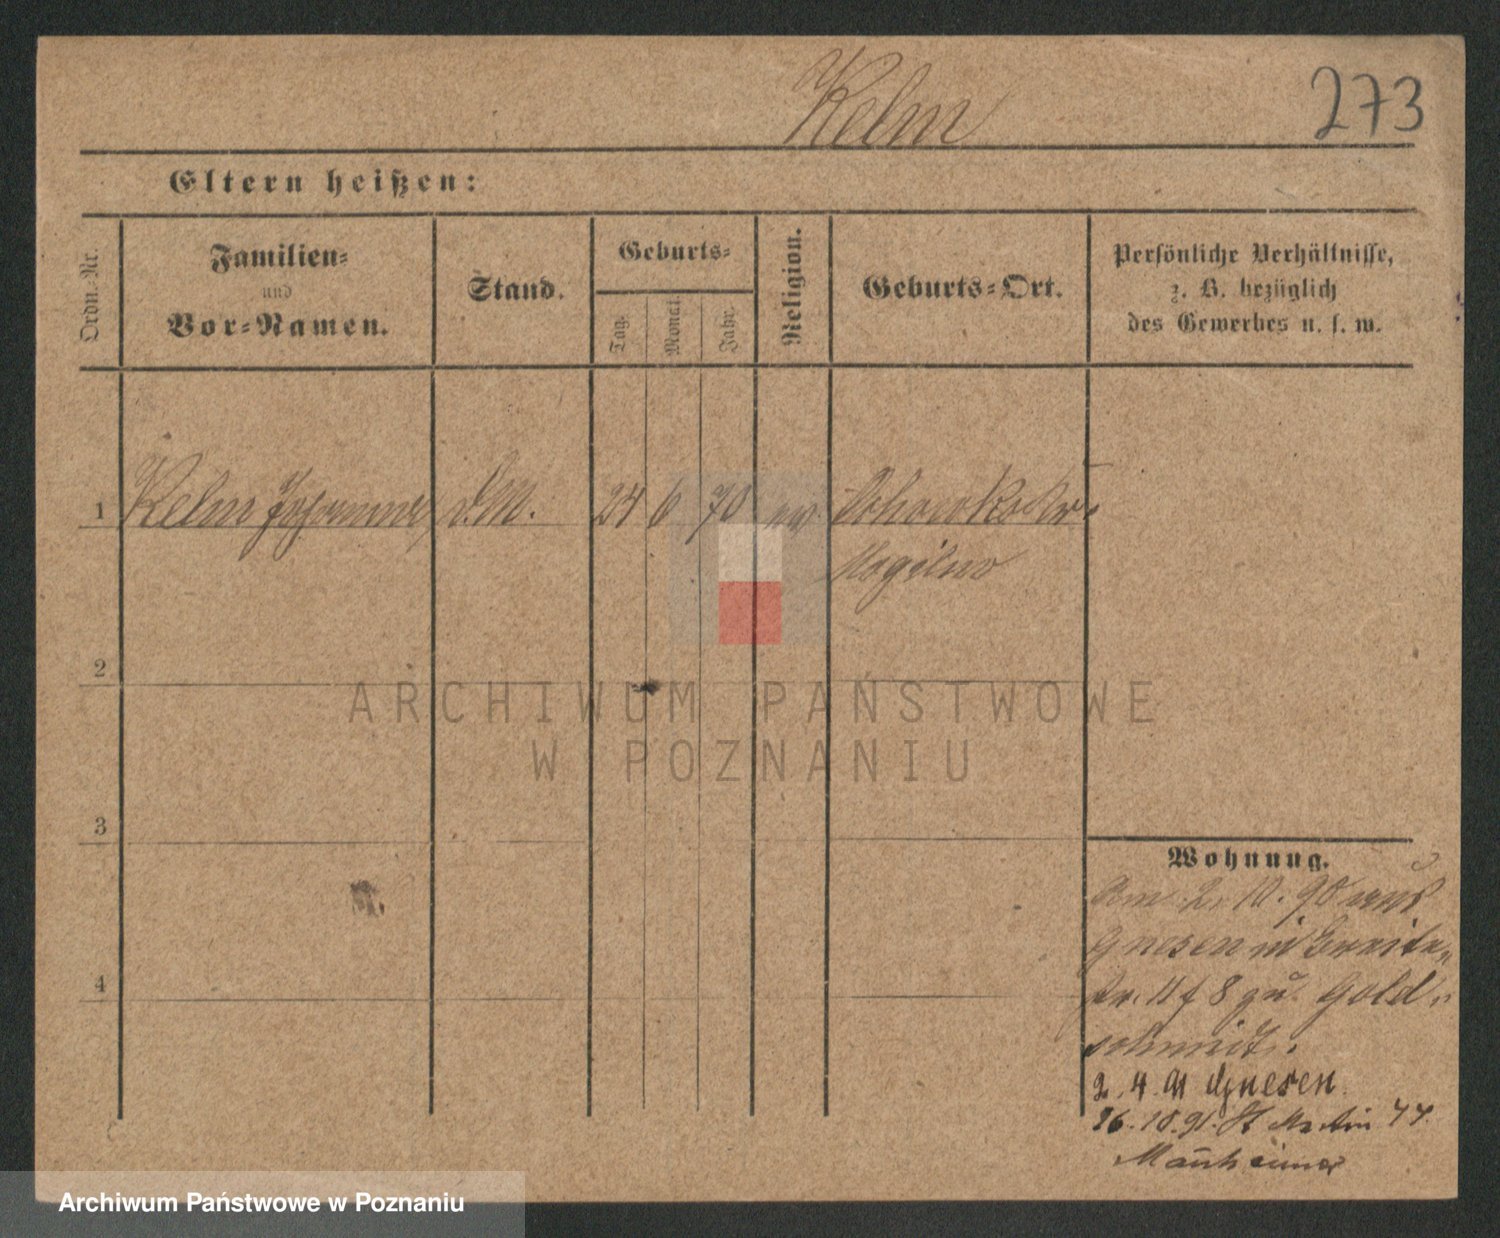 Kelm
273
Eltern heißen:
Ordn.-Nr.
Familien-
und
Vor-Namen.
Stand.
Geburts-
Tag.
Monat.
Jahr.
Religion.
Geburts-Ort.
Persönliche Verhältnisse,
z. B. bezüglich
des Gewerbes u. s. w.
1 Kelm Johanna d.M. 24 6 70 ev.
Mogilno
2
3
4
Wohnung.
Am 2. 10. 90 aus
Gnesen in Breite-
str. 11 f 8 zu Gold-
schmidt.
2. 4. 91 Gnesen
16. 10. 91. St Martin 44.
Manheimer
ARCHIWUM PAŃSTWOWE
W POZNANIU
Archiwum Państwowe w Poznaniu